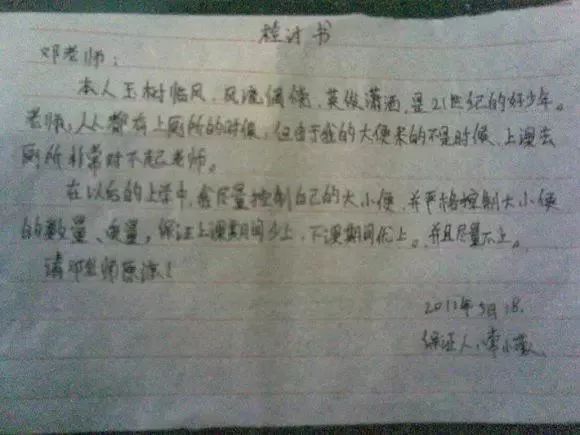 检讨书
邓老师:
本人玉树临风,风流倜傥,英俊潇洒,是21世纪的好少年。
老师,人人都有上厕所的时候,但由于我的大便来的不是时候,上课去
厕所非常对不起老师。
在以后的上学中,会尽量控制自己的大小便,并严格控制大小便
的数量、质量,保证上课期间少上,下课期间优上。并且尽量不上。
请邓老师原谅!
月
保证人:李小